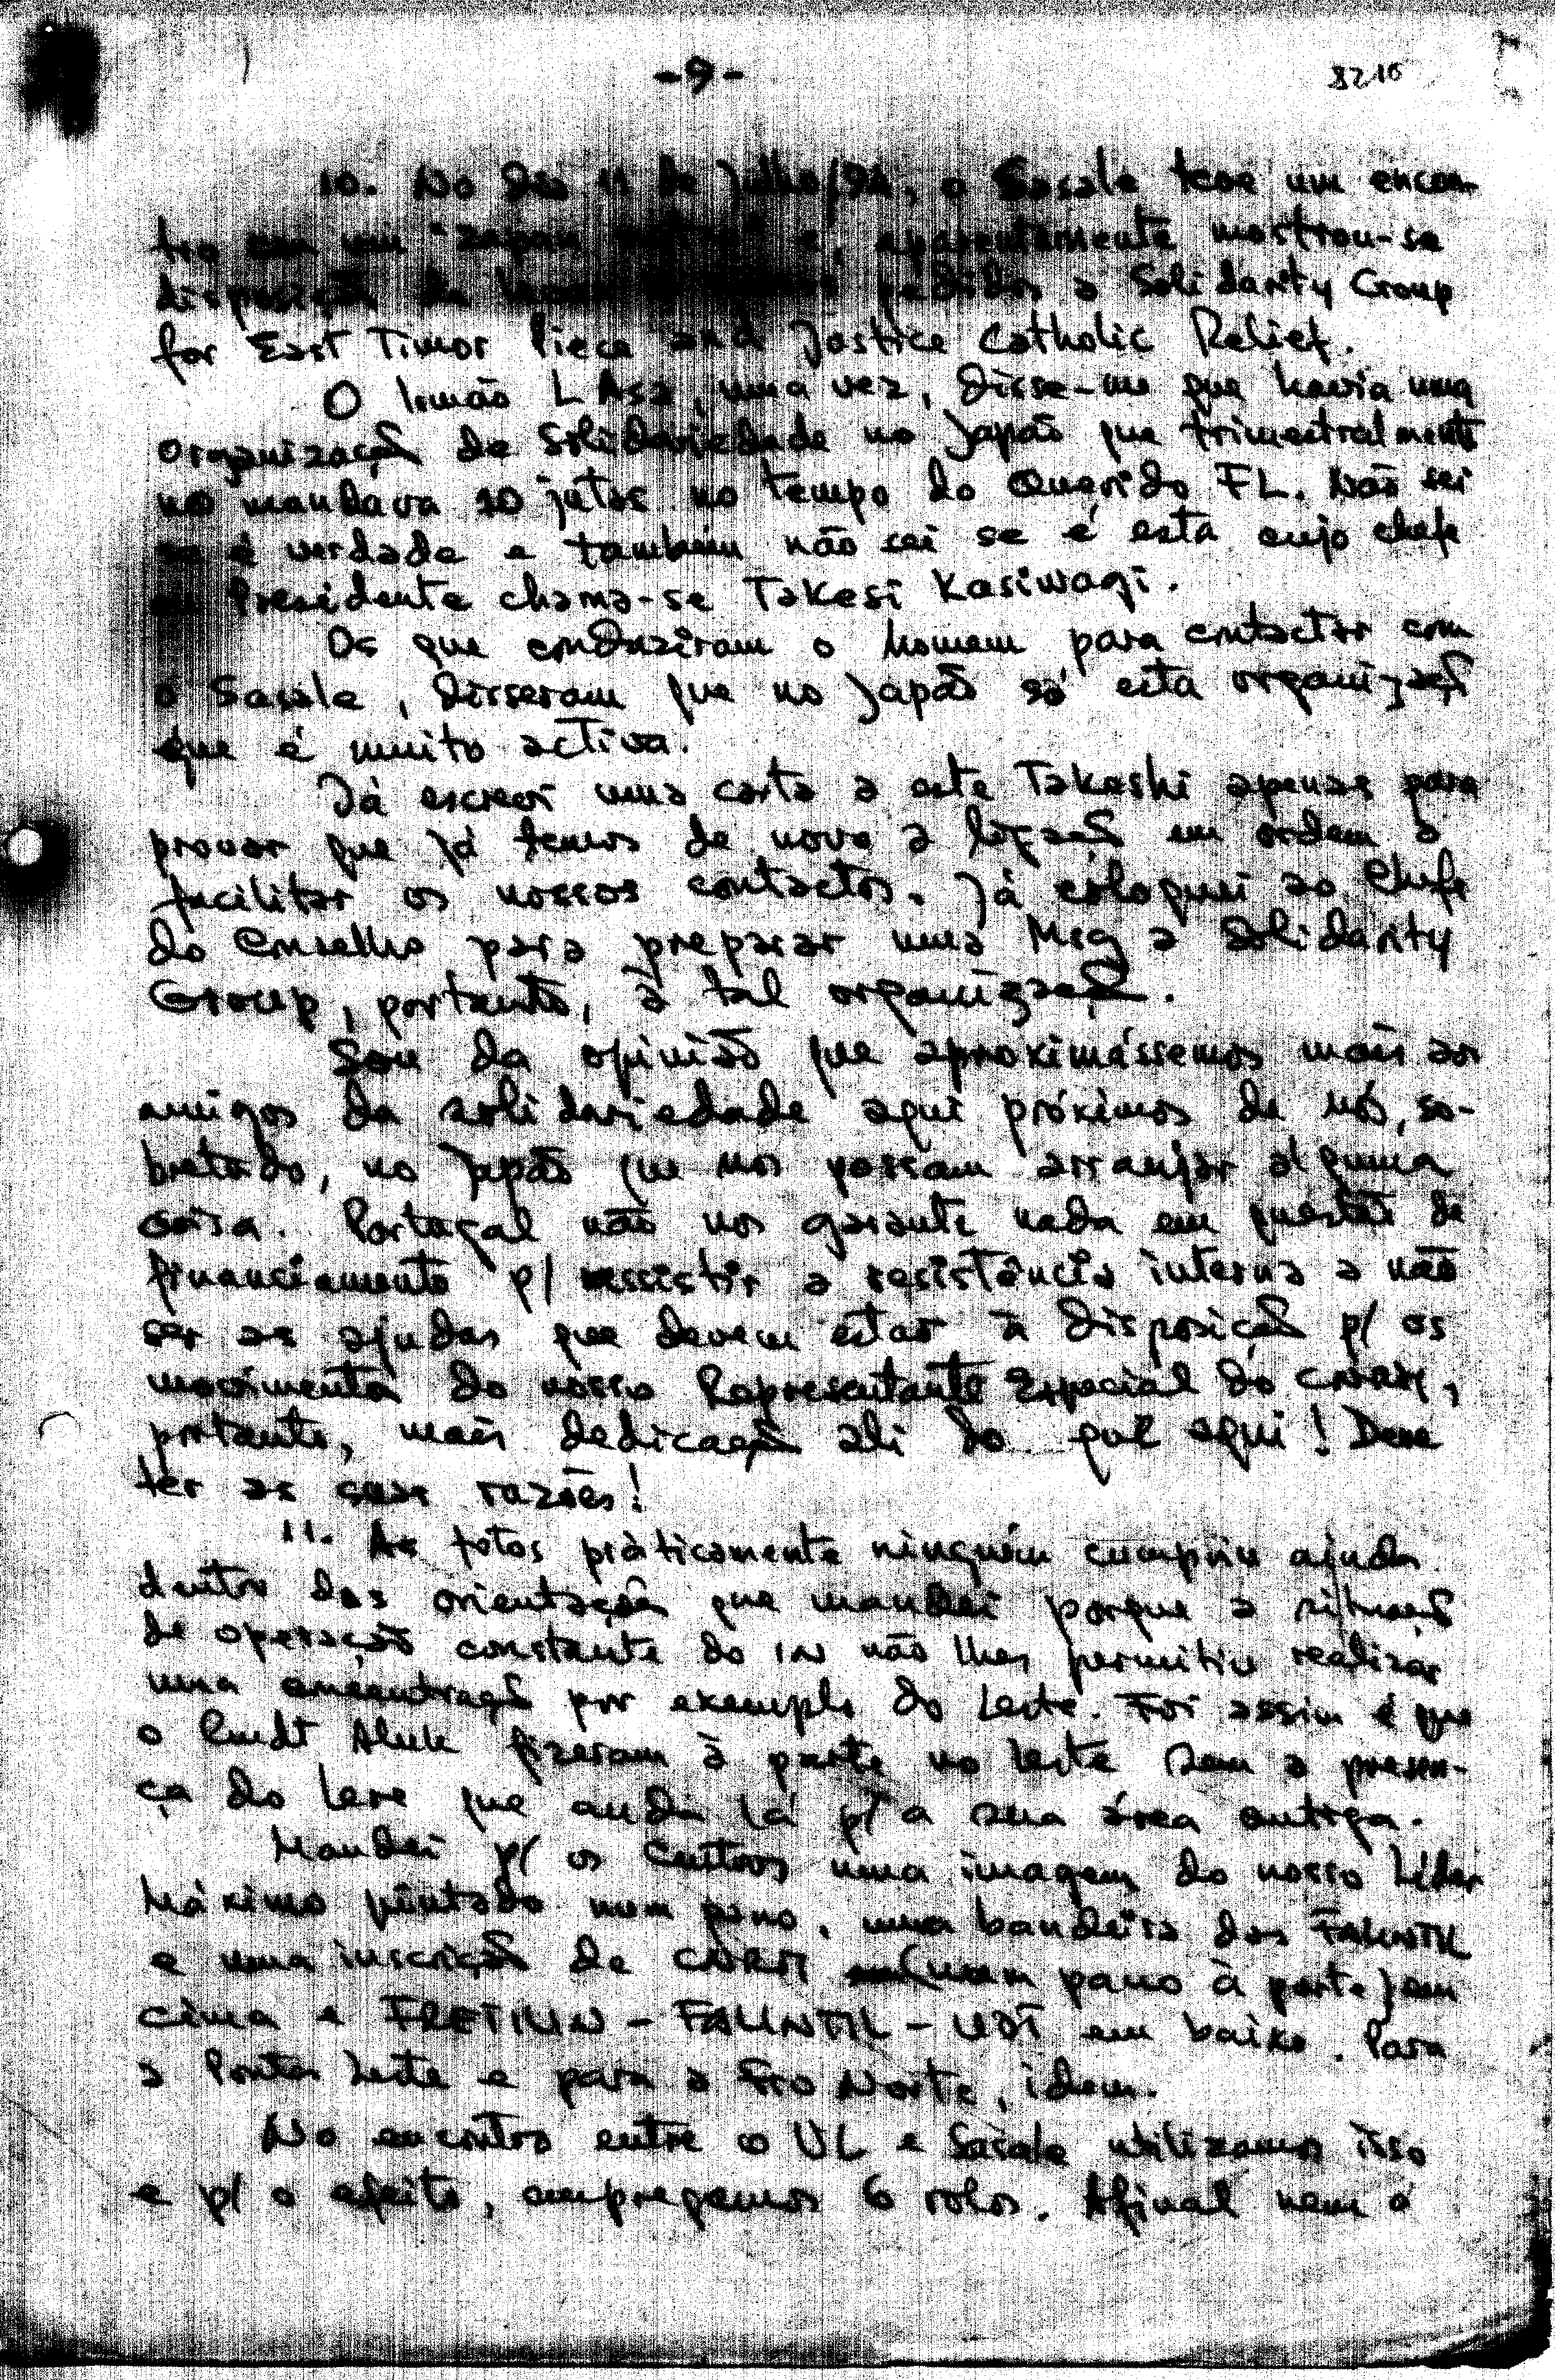 -9-
8210
10. No dia 11 de Julho/94, o Sasale teve um encon-
tro com um "zapan e, aparentemente mostrou-se
disposição de levar pedidos a Solidarity Group
for East Timor Piece and Jostice Catholic Relief.
O Irmão L Asa, uma vez, disse-me que havia uma
organização de Solidariedade no Japão que trimestralmente
no mandava 10 jutos no tempo do Querido FL. Não sei
se é verdade e também não sei se é esta cujo chefe
ou Presidente chama-se Takesi Kasiwagi.
Os que conduziram o homem para contactar com
o Sasale, disseram que no Japão só esta organização
que é muito activa.
Já escrevi uma carta a este Takeshi apenas para
provar que já temos de novo a ligação em ordem a
facilitar os nossos contactos. Já coloquei ao Chefe
do Conselho para preparar uma Msg a Solidarity
Group, portanto, à tal organização.
Sou da opinião que aproximássemos mais aos
amigos da solidariedade aqui próximos de nós, so-
bretudo, no Japão que nos possam arranjar alguma
coisa. Portugal não nos garante nada em questão de
financiamento p/ assistir a resistência interna a não
ser as ajudas que devem estar à disposição p/ os
movimentos do nosso Representante Especial do CNRM,
portanto, mais dedicação ali do que aqui! Deve
ter as suas razões!
11. As fotos pràticamente ninguém cumpriu ainda
dentro das orientações que mandei porque a situação
de operação constante do IN não lhes permitiu realizar
uma concentração por exemplo do Leste. Foi assim é que
o Cmdt Aluk fizeram à parte no leste sem a presen-
ça do Lere que anda lá p/ a sua área antiga.
Mandei p/ os Centros uma imagem do nosso Líder
Máximo pintado num pano, uma bandeira das FALINTIL
e uma inscrição de CNRM (num pano à parte) em
cima e FRETILIN - FALINTIL - UDT em baixo. Para
a Ponta Leste e para a Fro Norte, idem.
No encontro entre o UL e Sasale utilizamos isso
e p/ o efeito, empregamos 6 rolos. Afinal nem o